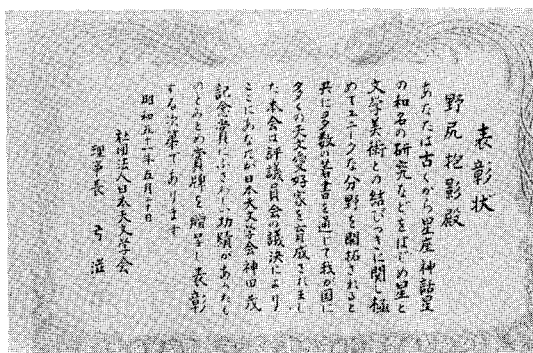 表彰状
野尻抱影殿
あなたは古くから星座神話星
の和名の研究などをはじめ星と
文学美術との結びつきに関し極
めてユニークな分野を開拓されると
共に多数の著書を通じて我が国に
多くの天文愛好家を育成されまし
た本会は評議員会の議決により
ここにあなたが日本天文学会神田茂
記念賞にふさわしい功績があったも
のとみとめ賞牌を贈呈し表彰
する次第であります
昭和五十一年五月二十日
社団法人日本天文学会
理事長 弓 滋